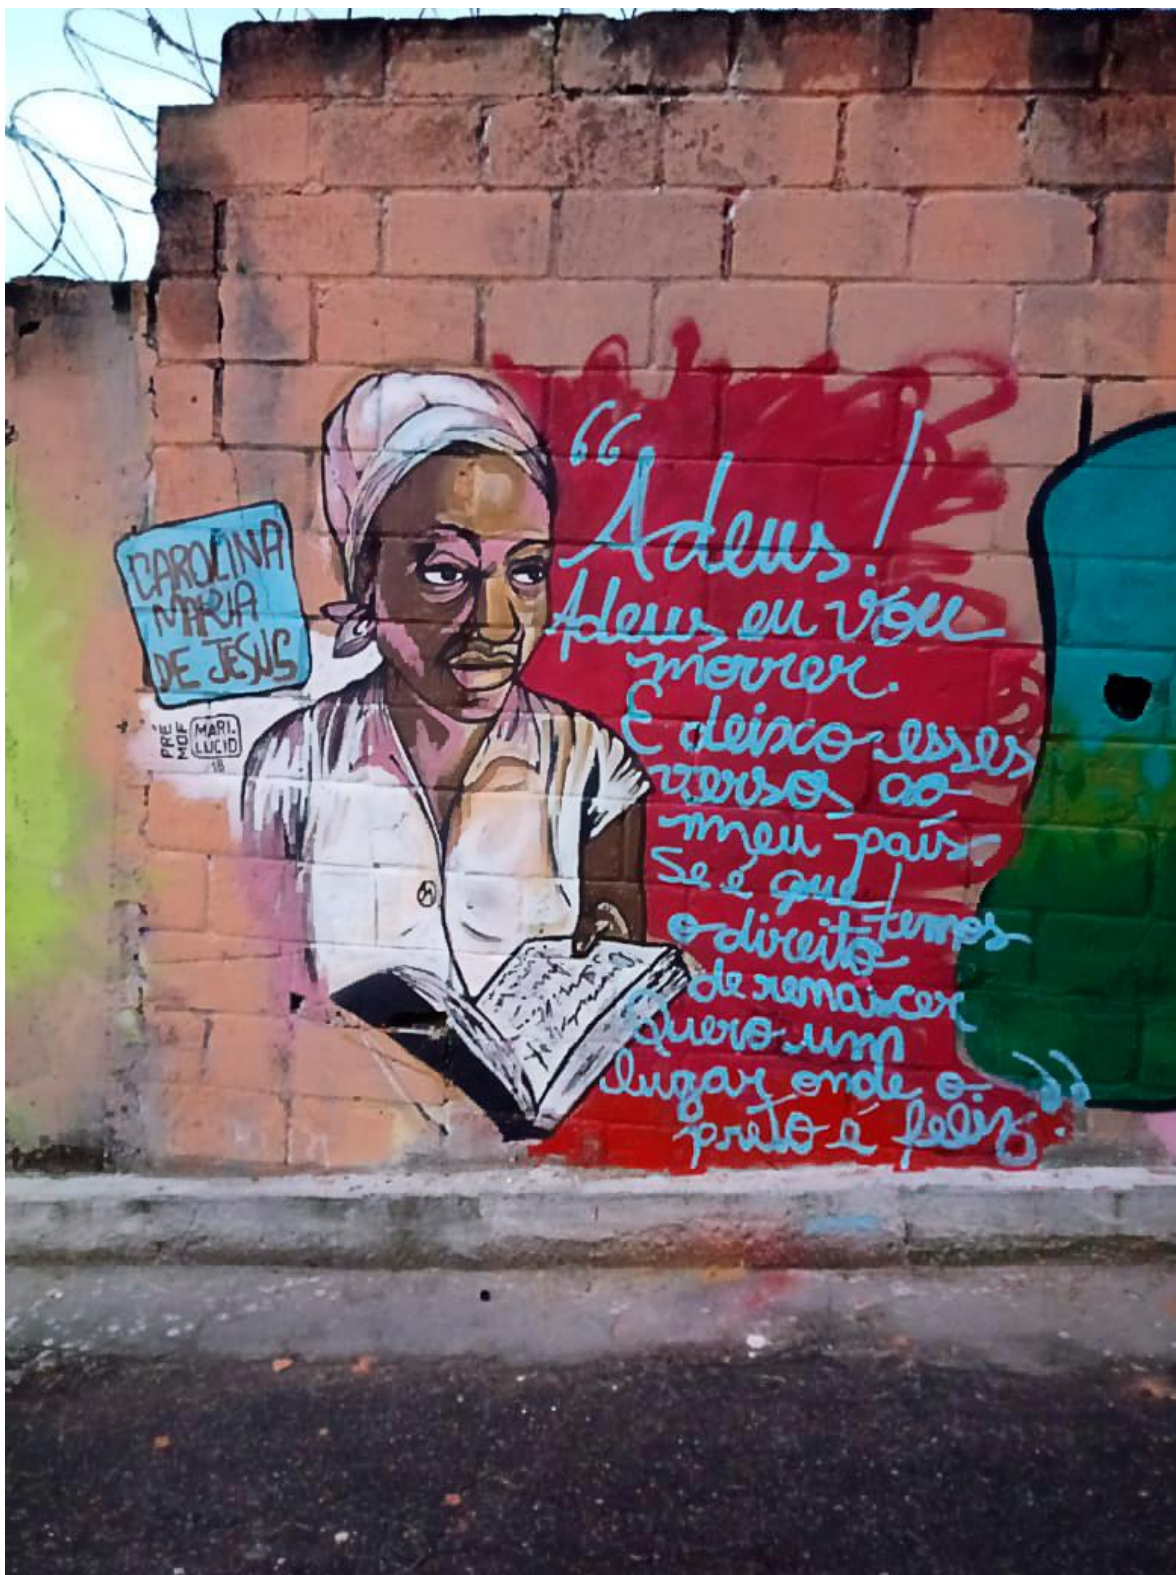 CAROLINA
MARIA
DE JESUS
MARI.
LUCIO
18
“Adeus!
Adeus, eu vou
morrer.
E deixo esses
versos ao
meu país
Se é que temos
o direito
de renascer
Quero um
lugar onde o
preto é feliz.”